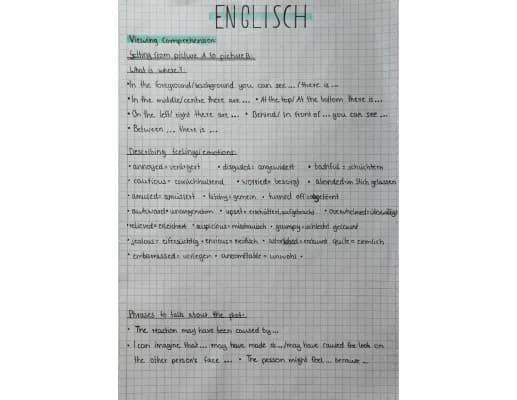 ENGLISCH
Viewing Comprehension:
Getting from picture A to picture B:
What is where?:
• In the foreground/background you can see ... / there is ...
• In the middle/centre there are ... • At the top/ At the bottom there is ...
• On the left/ right there are ... • Behind/ in front of ... you can see ...
• Between ... there is ...
Describing feelings/emotions:
• annoyed = verärgert • disgusted = angewidert • bashful = schüchtern
• cautious = zurückhaltend • worried = besorgt • im Stich gelassen
• amused = amüsiert • = gemein • turned off =
• awkward = unangenehm • upset = erschüttert, aufgebracht • overwhelmed =
• relieved = erleichtert • suspicious = misstrauisch • grumpy = schlecht gelaunt
• jealous = eifersüchtig • envious = neidisch • = quite = ziemlich
• embarrassed = verlegen • = unwohl •
Phrases to talk about the plot:
• The reaction may have been caused by ...
• I can imagine that ... may have made sb ... / may have caused the look on
the other person's face ... • The person might feel ... because ...